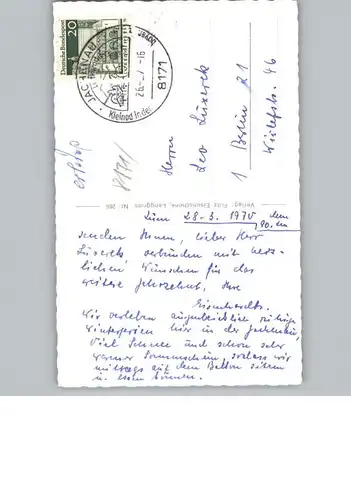 Deutsche Bundespost
20
JACHENAU
26.-2.-16
8171
Kleinod in der
Herrn
Leo Lüxerck
1 Berlin 21
Wiclefstr. 46
Verlag: Fritz Eisenschenk, Lenggries Nr. 266
Zum 28-3. 1970 dem
90.en
senden Ihnen, lieber Herr
Lüxerck verbunden mit herz-
lichen Wünschen für das
weitere Jahrzehnt, Ihre
Eisenhardts.
Wir verleben augenblicklich ruhige
Winterferien hier in der Jachenau,
viel Schnee und schon sehr
warmer Sonnenschein, sodass wir
mittags auf dem Balkon sitzen
u. essen können.